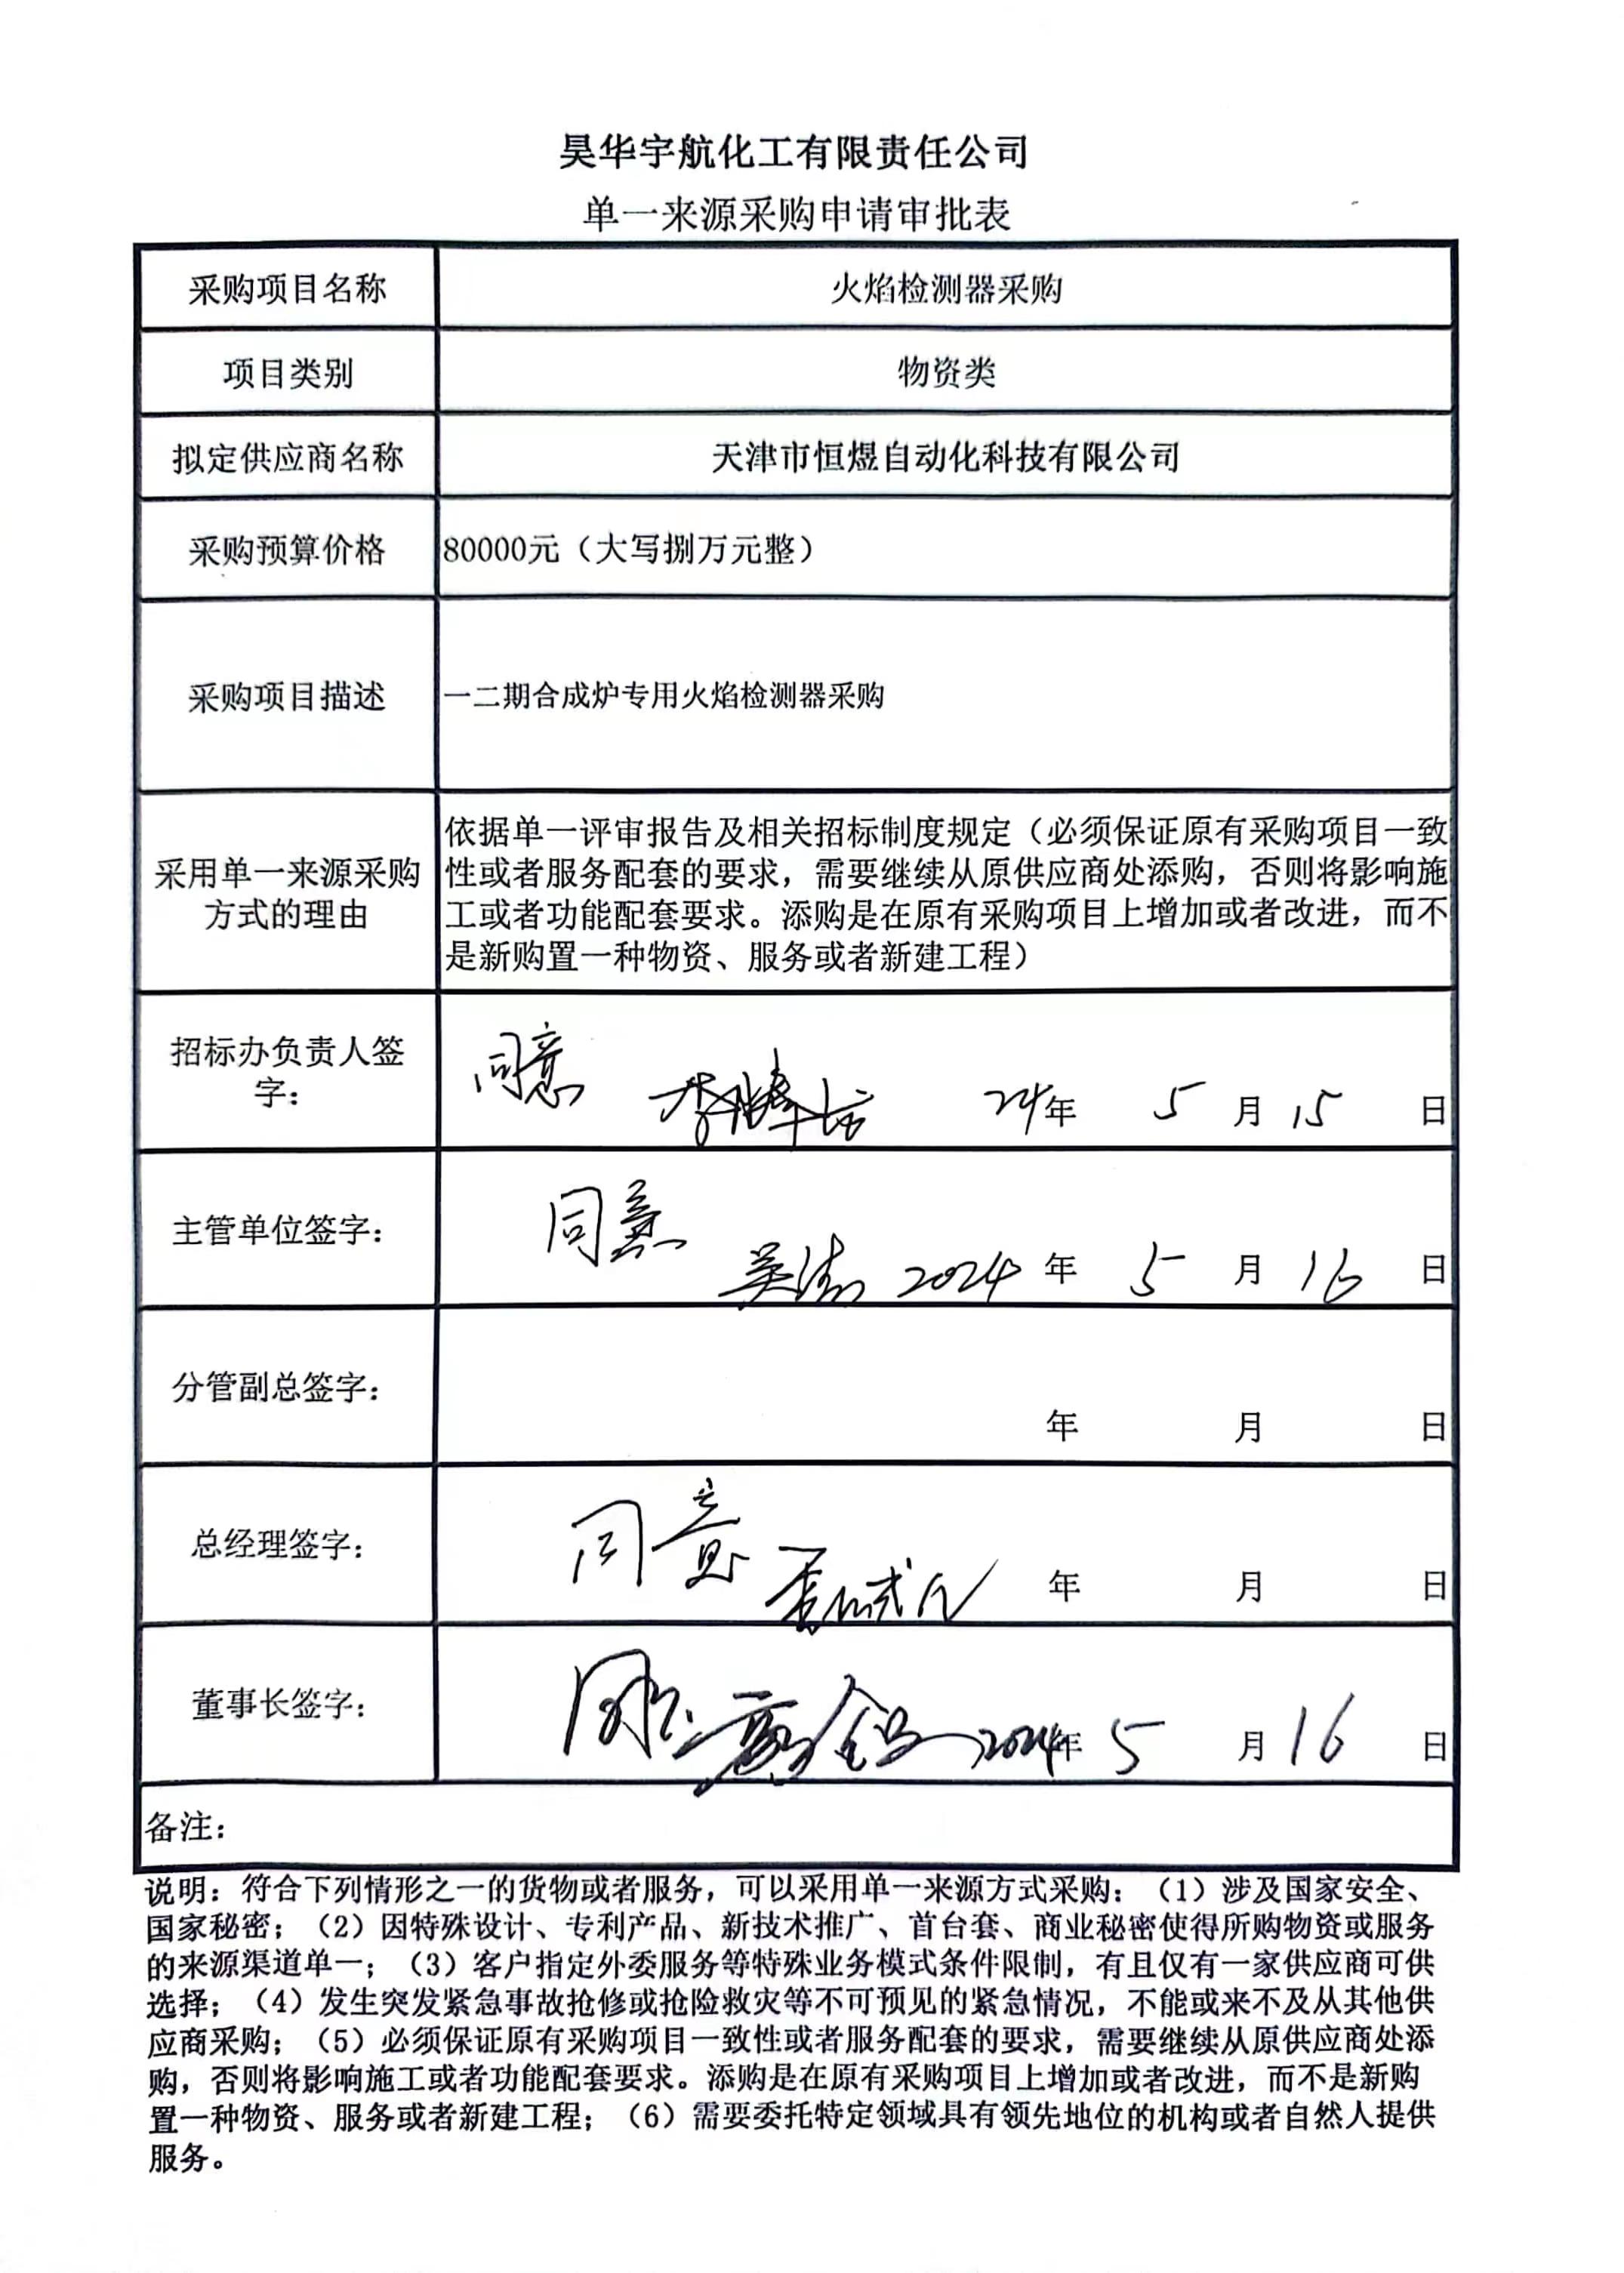 昊华宇航化工有限责任公司
单一来源采购申请审批表
采购项目名称 火焰检测器采购
项目类别 物资类
拟定供应商名称 天津市恒煜自动化科技有限公司
采购预算价格 80000元（大写捌万元整）
采购项目描述 一二期合成炉专用火焰检测器采购
采用单一来源采购
方式的理由
依据单一评审报告及相关招标制度规定（必须保证原有采购项目一致
性或者服务配套的要求，需要继续从原供应商处添购，否则将影响施
工或者功能配套要求。添购是在原有采购项目上增加或者改进，而不
是新购置一种物资、服务或者新建工程）
招标办负责人签
字：
同意
24年 5 月 15 日
主管单位签字：
同意
2024 年 5 月 16 日
分管副总签字：
年 月 日
总经理签字：
同意
年 月 日
董事长签字：
2024年 5 月 16 日
备注：
说明：符合下列情形之一的货物或者服务，可以采用单一来源方式采购：（1）涉及国家安全、
国家秘密；（2）因特殊设计、专利产品、新技术推广、首台套、商业秘密使得所购物资或服务
的来源渠道单一；（3）客户指定外委服务等特殊业务模式条件限制，有且仅有一家供应商可供
选择；（4）发生突发紧急事故抢修或抢险救灾等不可预见的紧急情况，不能或来不及从其他供
应商采购；（5）必须保证原有采购项目一致性或者服务配套的要求，需要继续从原供应商处添
购，否则将影响施工或者功能配套要求。添购是在原有采购项目上增加或者改进，而不是新购
置一种物资、服务或者新建工程；（6）需要委托特定领域具有领先地位的机构或者自然人提供
服务。